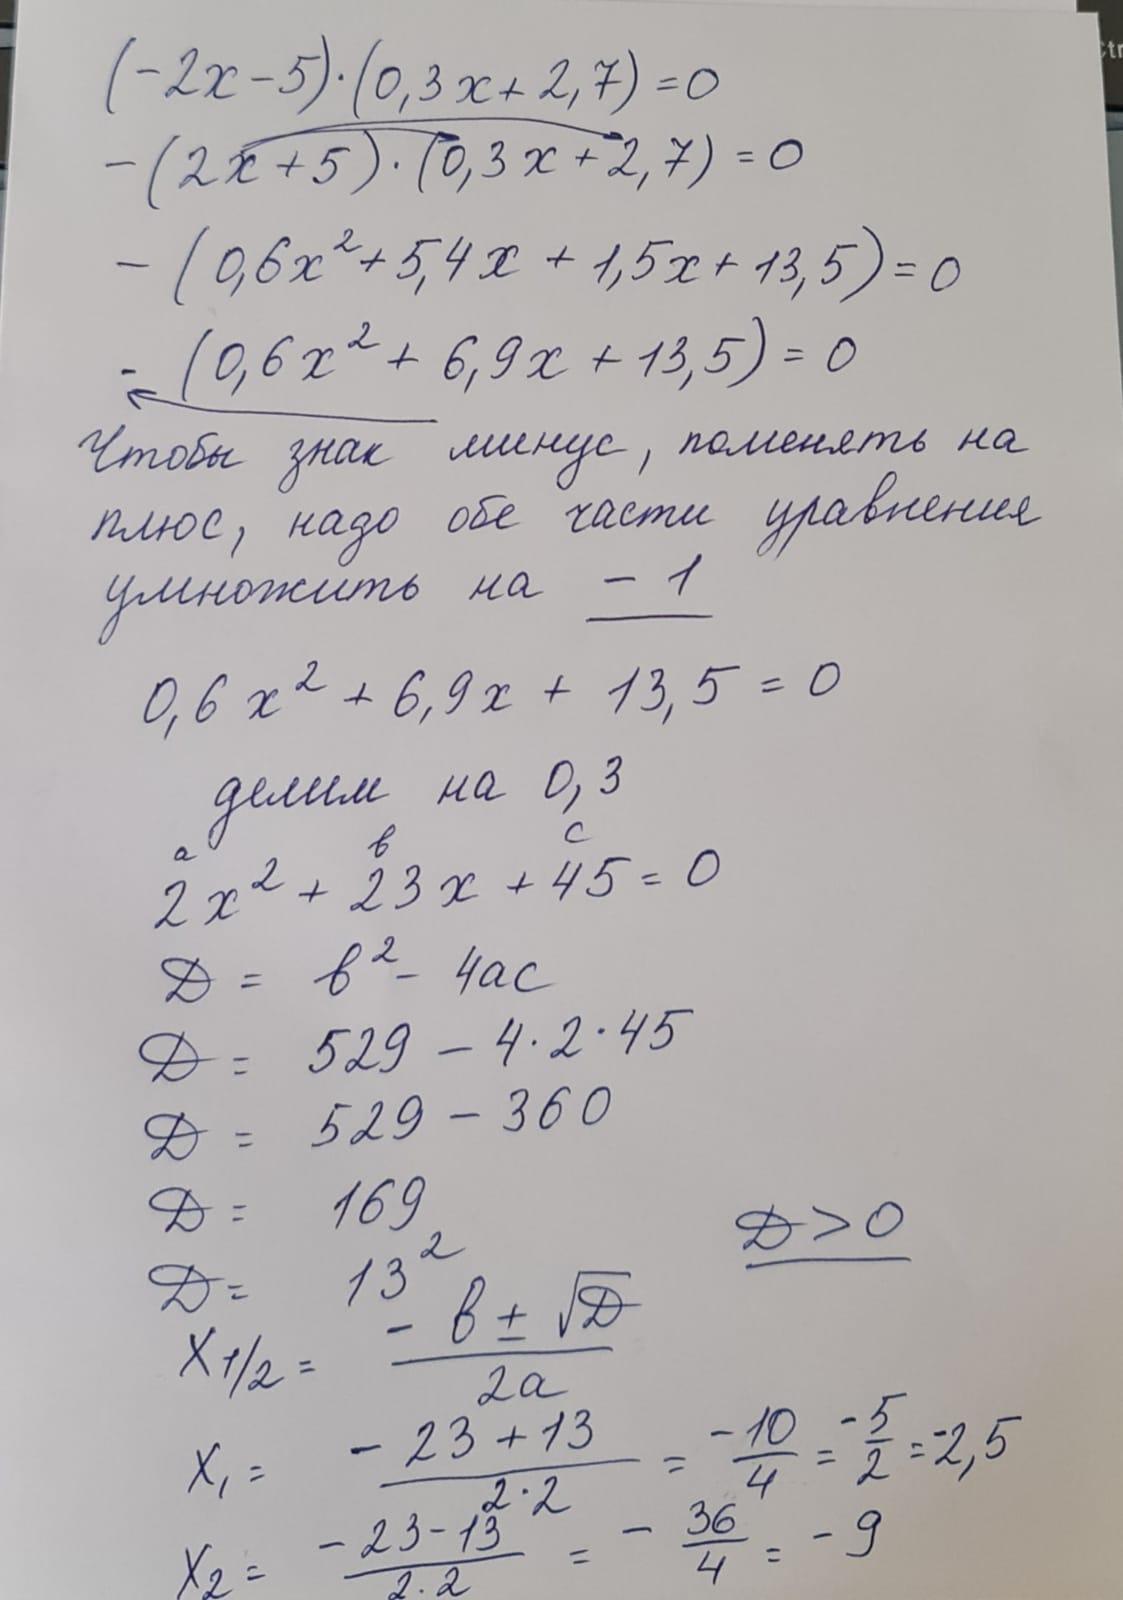 (-2x-5)·(0,3x+2,7)=0
-(2x+5)·(0,3x+2,7)=0
-(0,6x²+5,4x+1,5x+13,5)=0
-(0,6x²+6,9x+13,5)=0
Чтобы знак минус, поменять на
плюс, надо обе части уравнения
умножить на -1
0,6x²+6,9x+13,5=0
делим на 0,3
a в c
2x²+23x+45=0
D = в²-4ac
D = 529-4·2·45
D = 529-360
D = 169
D>0
D = 13²
X1/2 = (-в±√D)/2a
X₁ = (-23+13)/2·2 = -10/4 = -5/2 = -2,5
X₂ = (-23-13)/2·2 = -36/4 = -9
Ctr